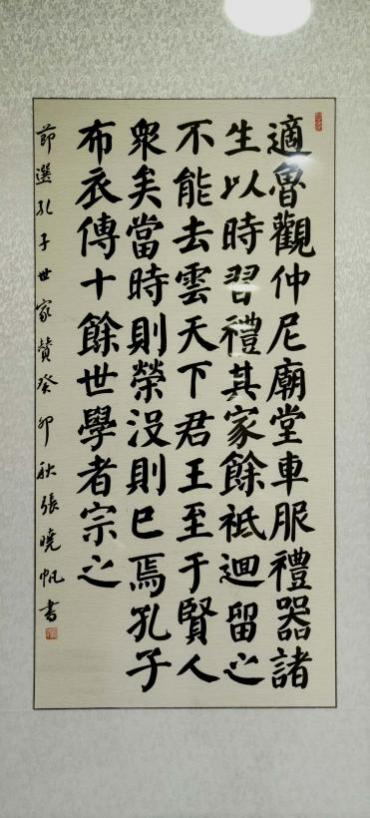 適魯觀仲尼廟堂車服禮器諸
生以時習禮其家餘祗迴留之
不能去雲天下君王至于賢人
衆矣當時則榮沒則已焉孔子
布衣傳十餘世學者宗之
節選孔子世家贊癸卯秋張曉帆書